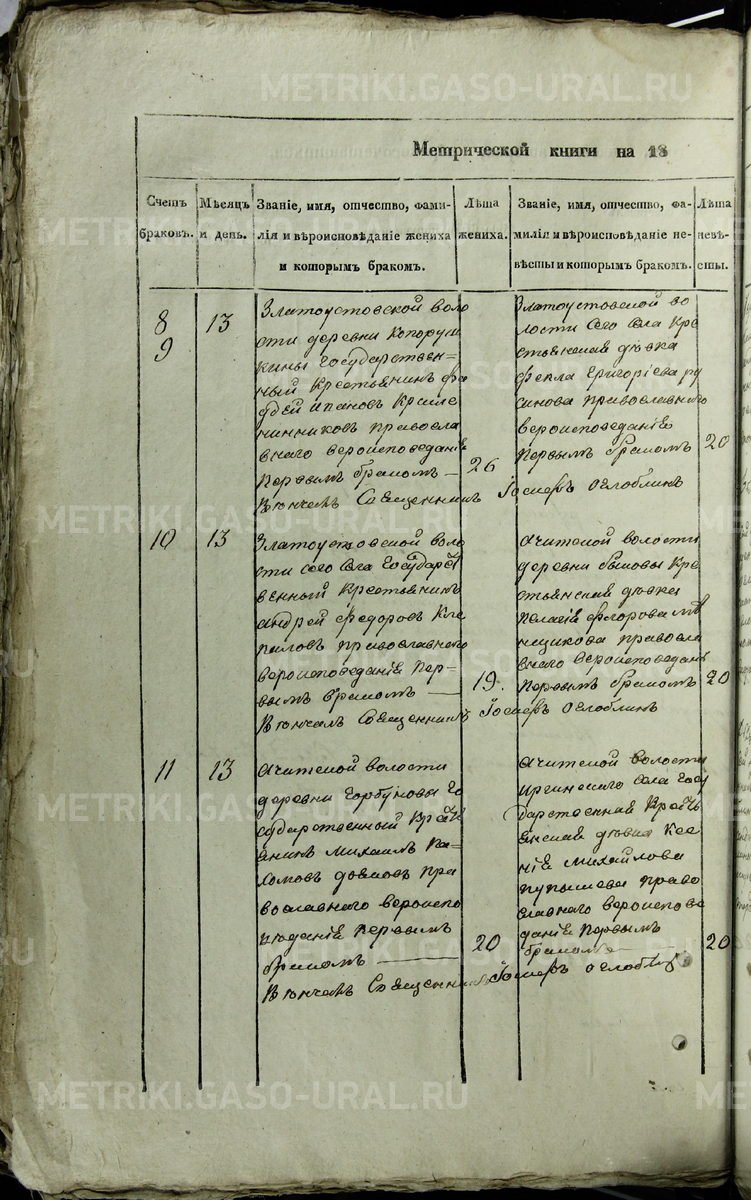 METRIKI.GASO-URAL.RU
Метрической книги на 18
Счетъ браковъ.
Мѣсяцъ и день.
Званіе, имя, отчество, фами-
лія и вѣроисповѣданіе жениха
и которымъ бракомъ.
Лѣта жениха.
Званіе, имя, отчество, фа-
милія и вѣроисповѣданіе не-
вѣсты и которымъ бракомъ.
Лѣта невѣ-
сты.
8
9
13
Златоустовской воло
сти деревни
Государствен-
ный Крестьянинъ Фа
дей Ивановъ
православ
внаго вероисповеданія
Первымъ бракомъ —
26
Златоустовской во
лости сего села Кре
стьянская дѣвка
Фекла Григоріева ру
синова православнаго
вероисповеданія
Первымъ бракомъ
20
Вѣнчалъ Священникъ Іосифъ Оглоблинъ
10
13
Златоустовской воло
сти сего села Государст
венный Крестьянинъ
Андрей Федоровъ Кле
паловъ православнаго
вероисповеданія Пер-
вымъ бракомъ —
19.
Ачитской волости
деревни Быковы Кре
стьянская дѣвка
Пелагія Флорова
православ
внаго вероисповедан
Первымъ бракомъ
20
Вѣнчалъ Священникъ Іосифъ Оглоблинъ
11
13
Ачитской волости
деревни Горбуновы Го
сударственный Крест
янинъ Михаилъ Па
хомовъ пра
вославнаго вероиспо
вѣданія Первымъ
бракомъ —
20
Ачитской волости
Иргинскаго села Госу
дарственная Крестъ
янская дѣвка Ксе
нія Михайлова
Пупышева право
славнаго вероиспове
данія Первымъ
бракомъ —
20
Вѣнчалъ Священникъ Іосифъ Оглоблинъ